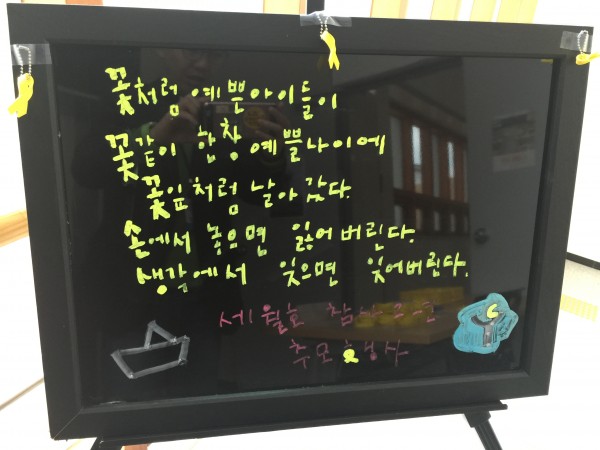 꽃처럼 예쁜아이들이
꽃같이 한창 예쁠나이에
꽃잎처럼 날아갔다.
손에서 놓으면 잃어버린다.
생각에서 잊으면 잊어버린다.
세월호 참사 2주년
추모행사